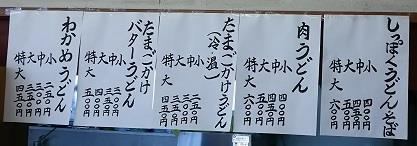 しっぽくうどん、そば
小 四〇〇円
中
大
特大 六〇〇円
肉うどん
小 四〇〇円
中
大
特大 六〇〇円
たまごかけうどん
(冷・温)
小 二五〇円
中 三〇〇円
大 三五〇円
特大 四五〇円
たまごかけ
バターうどん
小 三〇〇円
中 三五〇円
大
特大 五〇〇円
わかめうどん
小 二五〇円
中 三〇〇円
大 三五〇円
特大 四五〇円